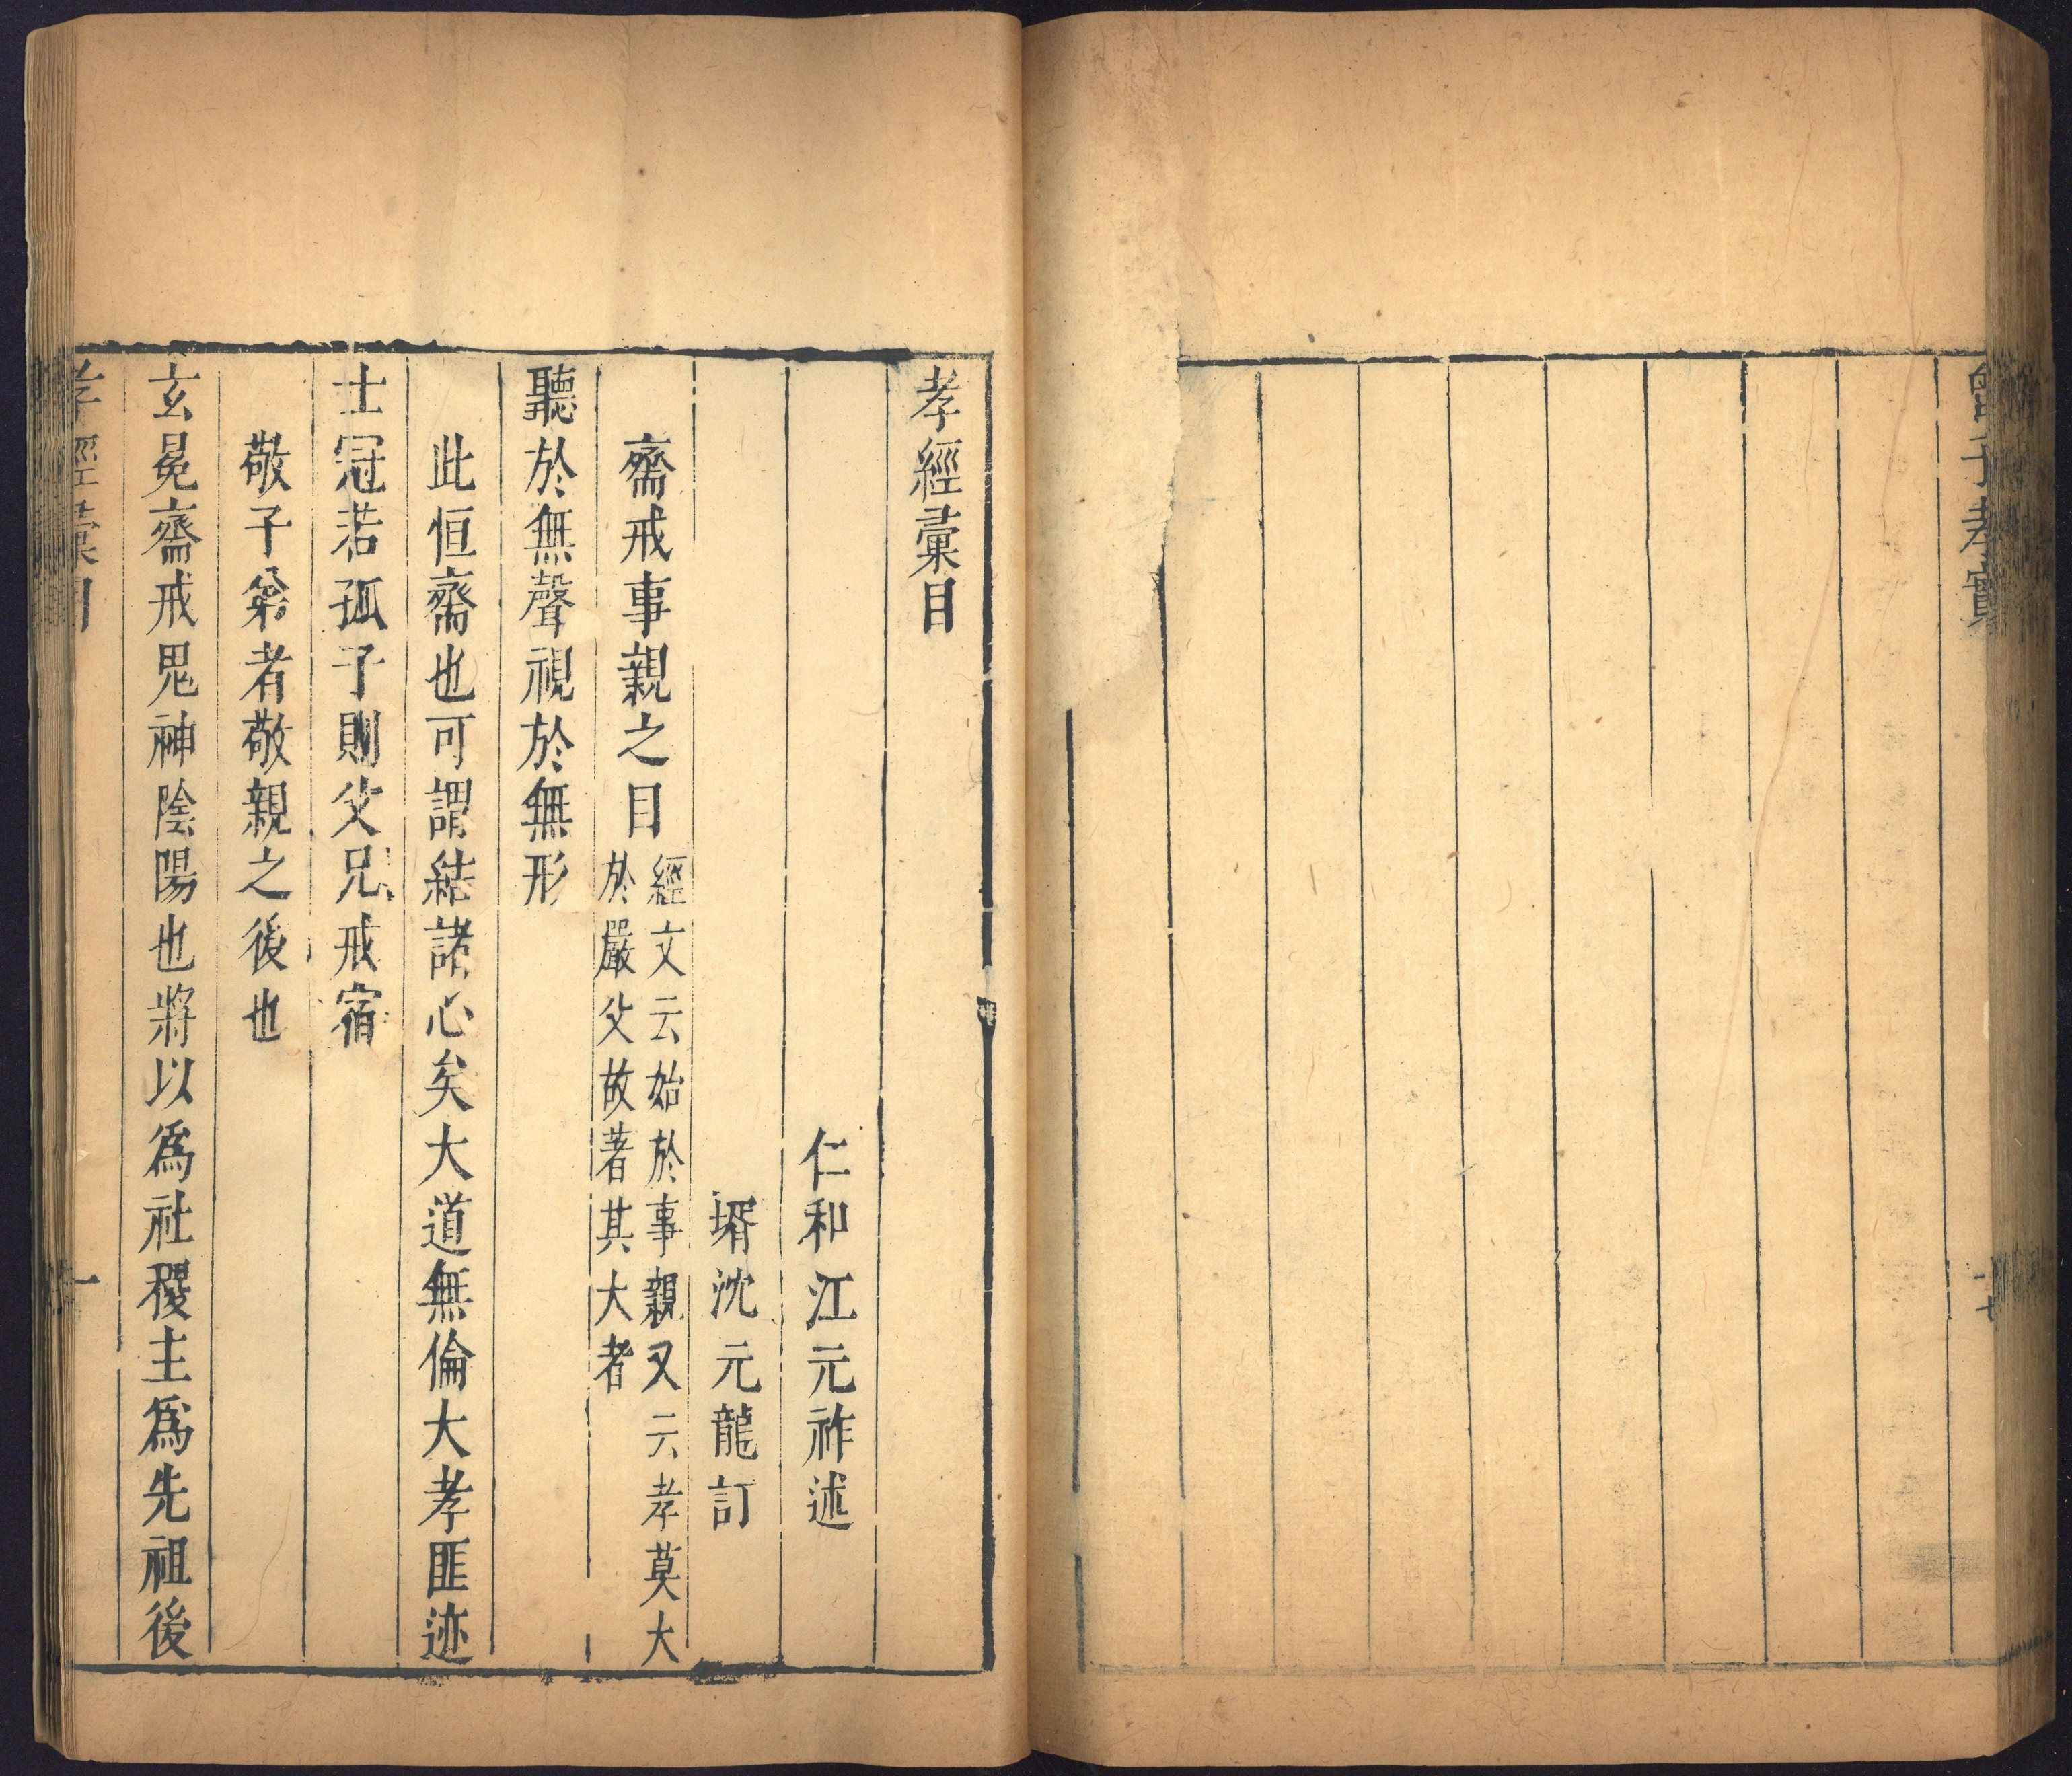 曾子孝實
十七
孝經彙目
仁和江元祚述
壻沈元龍訂
齋戒事親之目經文云始於事親又云孝莫大
於嚴父故著其大者
聽於無聲視於無形
此恒齋也可謂結諸心矣大道無倫大孝匪迹
士冠若孤子則父兄戒宿
敬子弟者敬親之後也
玄冕齋戒鬼神陰陽也將以為社稷主為先祖後
孝經彙目
一